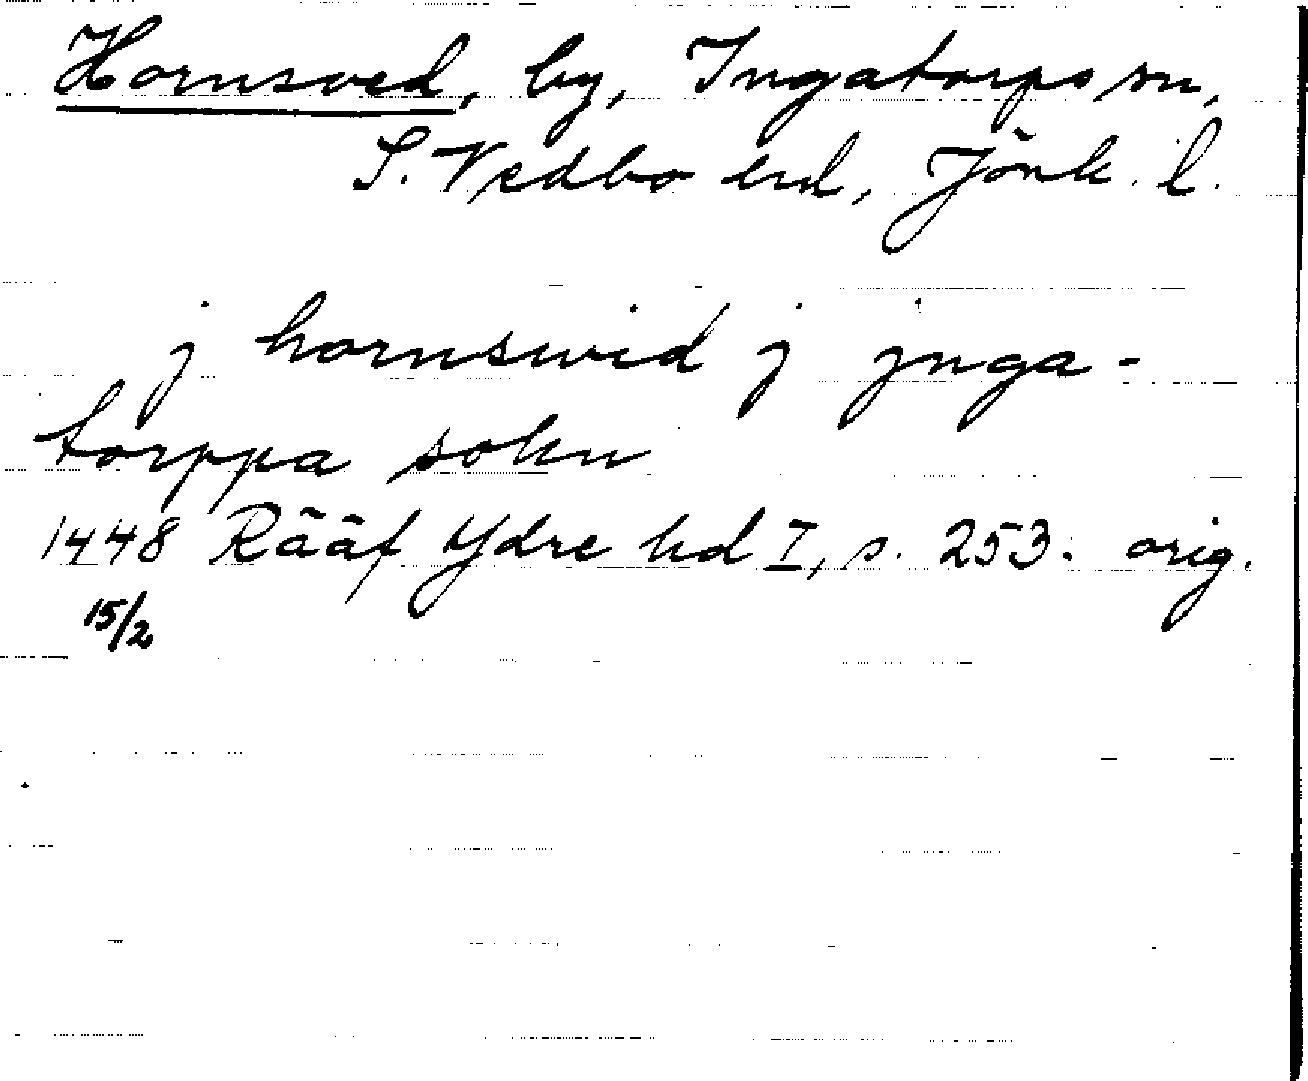 Hornsved, by, Ingatorps sn,
S. Vedbo hd, Jönk. l.
j hornswid j jnga-
torppa sokn
1448 Rääf Ydre hd I, s. 253. orig.
15/2